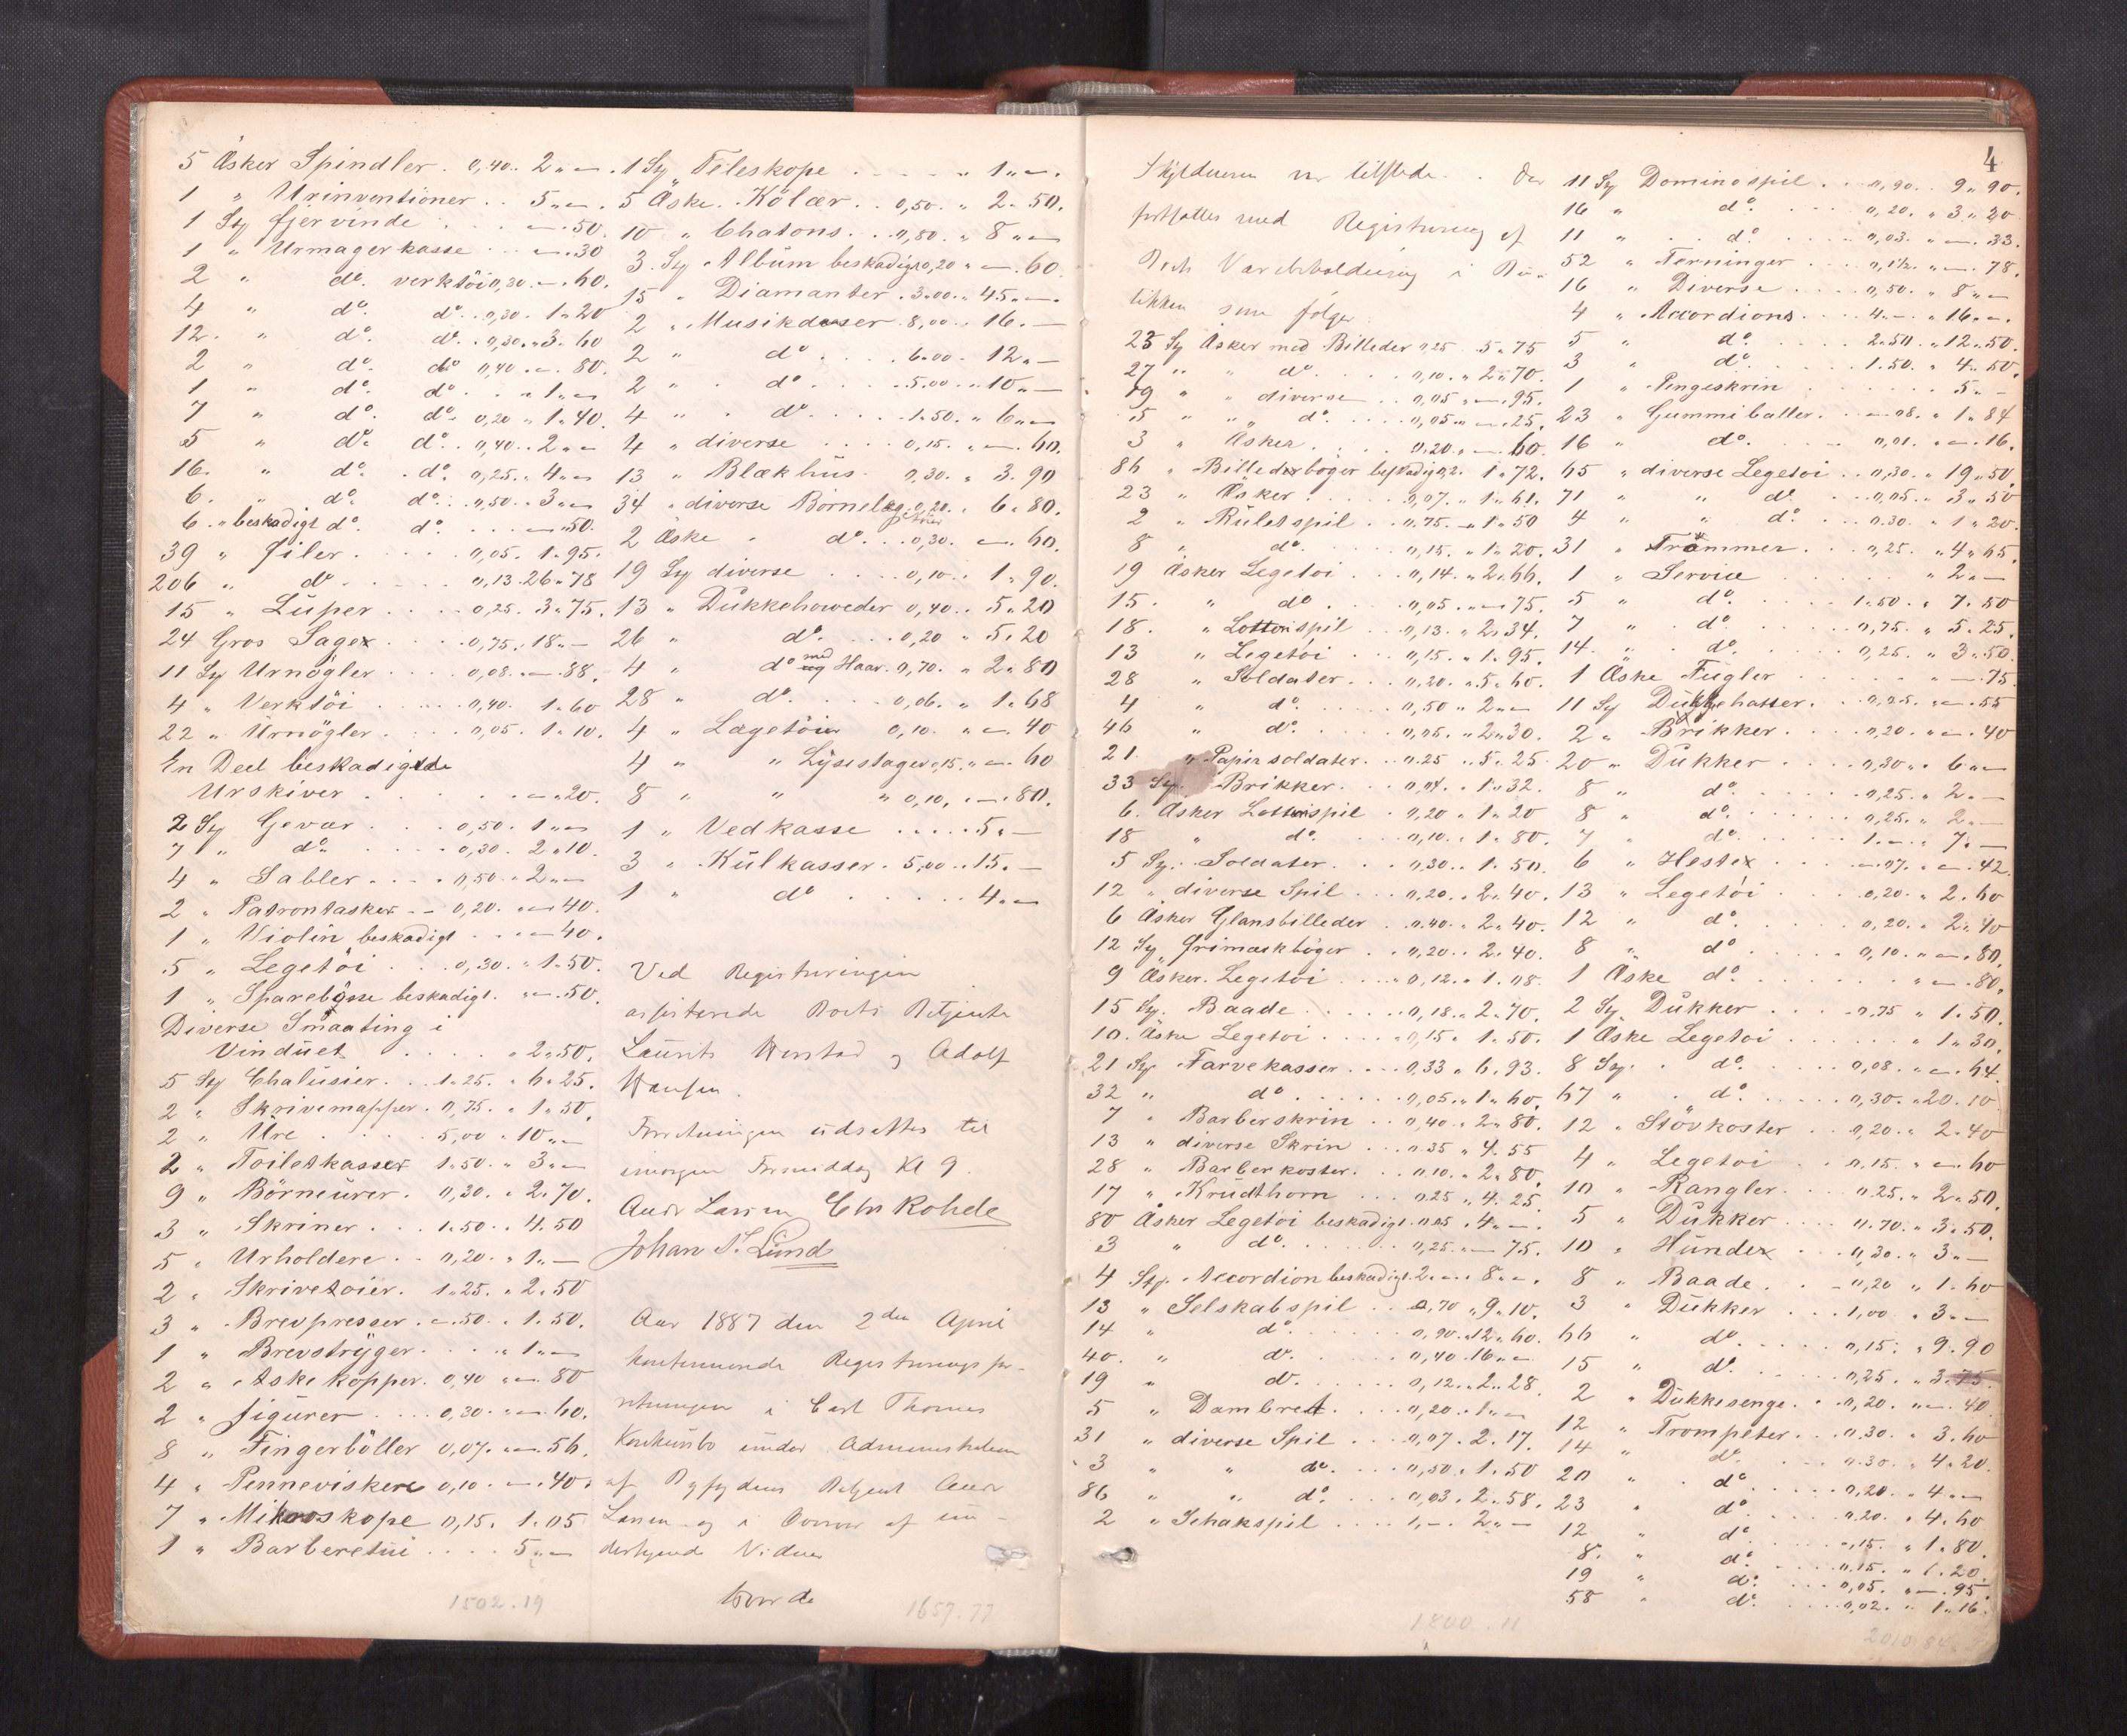 5 Äsker Spindler . 0,40 .. 2 „ —
1 „ Urinventioner .. 5 „ —
1 Sty fjervinde . . . — . 50.
1 „ Urmagerkasse . . — . 30
2 „ do. verktöi 0,30 . — . 60.
4 „ do. do. . 0,30 . 1 „ 20
12. „ do. do. . 0,30 . „ 3. 60
2 „ do. do 0,40 . — . 80.
1 „ do. do. . . „ 1 „ —
7 „ do. do. 0,20 „ 1 „ 40.
5 „ do. do. . 0,40 . . 2 „ —
16. „ do. . do. 0,25 . „ 4 „ —
6. „ do. do. . 0,50 . „ 3 „ —
6. „ beskadigt do. do. . . . — . 50.
39 „ filer . . . . 0,05 . 1 „ 95.
206 „ do . . . . 0,13 . 26 „ 78
15 „ Luper . . . . 0,25 . 3 „ 75.
24 Gros Sager . . . 0,75 . 18 „ —
11 Sty Urnögler . . . 0,08 . — . 88.
4 „ Verktöi . . . . 0,40. 1 „ 60
22 „ Urnögler . . . 0,05 . 1 „ 10.
En Deel beskadigede
Urskiver . . . . . — „ 20.
2 Sty Gevær . . . 0,50 . 1 „ —
7 „ do. . . . . 0,30 . 2 „ 10.
4 „ Sabler . . . . 0,50 . „ 2 „ —
2 „ Patrontasker . . 0,20 . „ — 40.
1 „ Violin beskadigt . . . — 40.
5 „ Legetöi . . . 0,30 . „ 1 „ 50.
1 „ Sparebösse beskadigt . „ — . 50.
Diverse Smaating i
Vinduet . . . . „ 2 „ 50.
5 Sty Chalusier . . 1 „ 25 . „ 6 „ 25.
2 „ Skrivemapper . 0,75 . „ 1 „ 50.
2 „ Ure . . . . 5,00 „ 10 „ —
2 „ Toiletkasser 1 „ 50. „ 3 „ —
9 „ Börneurer . 0,30 . „ 2. 70.
3 „ Skriner . . . 1 „ 50 . „ 4. 50
5 „ Urholdere . . 0,20 . „ 1 „ —
2 „ Skrivetöier . 1 „ 25 . „ 2 „ 50
3 „ Brevpresser . — . 50 . „ 1. 50.
1 „ Brevstryger . . . „ 1 „ —
2 „ Askekopper . 0,40 „ — . 80
2 „ figurer . . . 0,30 . „ — . 60.
8 „ Fingerböller 0,07 . „ — . 56.
4 „ Penneviskere 0,10 . — . 40.
7 „ Mikroskope 0,15. 1 „ 05
1 „ Barberetui . . . . 5 „ —
1502.19
1 Sty Teleskope . . . . „ 1 „ — .
5 Äske . Kölær . . 0,50 . „ 2 . 50.
10 „ Chatons . . . 0,80 . „ 8 „ —
3 . Sty Album beskadigt 0,20 „ — . 60.
15 „ Diamanter . 3 „ 00 . „ 45 „ — .
2 „ Musikdaaser . 8,00 . „ 16 . —
2 „ do . . . . 6 „ 00 . 12 „ —
2 „ do . . . . 5 „ 00 . „ 10 „ —
4 „ „ do . . . . 1 „ 50 . „ 6 „ —
4 „ diverse . . . . 0,15 . „ — . 60.
13 „ Blækhus . 0,30 . „ 3. 90
34 „ diverse Börneleg 0,20 . „ 6 „ 80.
2 Äske „ do . . . 0,30 . — . 60.
19 Sty diverse . . . . 0,10 . . 1 „ 90.
13 „ Dukkehoveder 0,40 . . 5 „ 20
26 „ do. . . . 0,20 „ 5. 20
4 „ do med Haar . 0,70 . „ 2 „ 80
28 „ do . . . . 0,06 . „ 1 „ 68
4 „ Lægetöi 0,10 . „ — . 40
4 „ „ Lysestager 0,15 . „ — 60
8 „ „ „ 0,10 . — . 80.
1 „ Vedkasse . . . . . 5 „ —
3 „ Kulkasser . 5,00 . „ 15 . —
1 „ do . . . . . 4 „ —
Ved Registreringen
assisterede Boets Betjente
Laurits Herstad og Adolf
Hansen .
Forretningen udsattes til
imorgen Formiddag Kl 9 .
Andr Larsen Chr Rohde
Johan S. Lund
Aar 1887 den 2den April
kontinuerede Registreringsfor-
retningen i Carl Thomes
Konkursbo under Administration
af Byfogdens Betjent Andr
Larsen og i Overvær af un-
dertegnede Vidner
Boer de
1657.77
4
Skyldneren var tilstede . Der
fortsattes med Registrering af
Boets Varebeholdning i Bu-
tikken som følger
23 Sty Äsker med Billeder 0,25 . 5 „ 75
27 „ „ do. . . . 0,10 . „ 2 „ 70.
19 „ „ diverse . . 0,05 „ — . 95.
5 „ „ do. . . . 0,05 „ — . 25.
3 „ Äsker . . . . 0,20 . „ — . 60.
86 „ Billedböger beskadigt 0,2 . 1 „ 72.
23 „ Äsker . . . . 0,07 . „ 1 „ 61.
2 „ Ruletspil . . 0,75 . — 1 „ 50
8 „ do. . . . 0,15 . „ 1 „ 20.
19 Äsker Legetöi . . . 0,14 . „ 2 „ 66.
15. „ do . . . . 0,05 . „ — 75.
18. „ Lotterispil . . 0,13 . „ 2 „ 34.
13 „ Legetöi . . . 0,15 . „ 1 „ 95.
28 „ Soldater . . . 0,20 . „ 5 „ 60.
4 „ do. . . . . 0,50 „ 2 „ —
46 „ do. . . . . 0,05 . „ 2 „ 30.
21. „ Papirsoldater . . 0,25 . „ 5 „ 25
33 Sty. Brikker . . . 0,04 . „ 1 „ 32.
6. Äsker Lotterispil . 0,20 „ 1 „ 20
18 „ do. . . . 0,10 . „ 1 „ 80.
5 Sty. Soldater . . . 0,30 . „ 1. 50.
12 „ diverse Spil . . . 0,20 . „ 2 „ 40.
6 Äsker Glansbilleder . . 0,40 . „ 2 „ 40.
12 Sty. Grimaskböger . . 0,20 . . 2 „ 40.
9 Äsker . Legetöi . . . 0,12 . „ 1. 08.
15 Sty. Baade . . . . 0,18 . „ 2 „ 70.
10. Äske Legetöi . . . 0,15 „ 1. 50.
21 Sty Farvekasser . . . 0,33 „ 6. 93.
32 „ do . . . . . 0,05 . „ 1 „ 60.
7 „ Barberskrin . . 0,40 . „ 2 „ 80.
13 „ diverse Skrin . . . 0,35 „ 4 „ 55
28 „ Barberkoster . . 0,10 . „ 2 „ 80.
17 „ Krudthorn . . . 0,25 „ 4. 25.
80 Äsker Legetöi beskadigt . 0,05 . 4 „ — .
3 „ do. . . . . 0,25 . „ — 75.
4 Sty. Accordion beskadigt 2 . — . 8 „ — .
13 „ Selskabspil . . 0,70 „ 9 „ 10.
14 „ do. . . . . 0,90 . „ 12 „ 60.
40. „ do. . . . . 0,40 . 16 „ —
19 „ do. . . . . 0,12 . „ 2 „ 28.
5 „ Dambret . . . 0,20 . 1 „ —
31 „ diverse Spil . . . 0,07 . 2 . 17.
3 „ „ do . . . 0,50 . „ 1 . 50
86 „ „ do. . . . 0,03 . 2 „ 58.
2 „ Schakspil . . . . 1, — . 2 „ —
1800.11
11 Sty Dominospil . . 0,90 . . 9 „ 90.
16 „ do. . . . 0,20 . „ 3 „ 20
11 „ . . do. . . . 0,03 . „ — . 33.
52 „ Terninger . . . 0,1½ . „ — . 78.
16 „ Diverse . . . 0,50 . „ 8 „ —
4 „ Accordions . . . 4 „ — . „ 16 „ — .
5 „ do. . . . . 2 „ 50 . „ 12 „ 50.
3 „ do. . . . . 1 . 50 . „ 4 „ 50.
1 „ Pengeskrin . . . . . 5 „ —
23 „ Gummiballer . . — 08 . „ 1 „ 84
16 „ do. . . . 0,01 . „ — . 16.
65 „ diverse Legetöi . . 0,30 . „ 19 „ 50.
71 „ „ do. . . 0,05 . „ 3 „ 50
4 „ „ do. . . 0,30 . „ 1 „ 20.
31 „ Trommer . . . 0,25 . „ 4 „ 65.
1 „ Service . . . . . „ 2 „ —
5 „ do. . . . . 1 „ 50 . „ 7. 50
7 „ do. . . . . 0,75 . „ 5. 25.
14. „ do. . . . . 0,25 . „ 3 „ 50.
1 Äske Fugler . . . . . „ — . 75.
11 Sty Dukkehatter . . 0,05 . „ — . 55
2 „ Brikker . . . 0,20 . „ — . 40
20 „ Dukker . . . 0,30 „ . 6 „ —
8 „ do. . . . . 0,25 . „ 2 . —
8 „ do. . . . . 0,25 . „ 2 „ —
7 „ do. . . . . 1 . — . „ 7 „ —
6 „ Hester . . . — . 07 . „ — . 42.
13 „ Legetöi . . . 0,20 . „ 2. 60
12 „ do. . . . . 0,20 . „ 2 „ 40
8 „ do . . . . 0,10 . „ — . 80.
1 Äske do. . . . . . „ — . 80.
2 Sty Dukker . . . . 0,75 „ 1. 50.
1 Äske Legetöi . . . . . „ 1 „ 30.
8 Sty. . do. . . . . 0,08 . „ — . 64.
67 „ . do. . . . . 0,30 . „ 20. 10
12 „ Stövkoster . . 0,20 . „ 2 „ 40
4 „ Legetöi . . 0,15 . „ — . 60
10 „ Rangler . . . 0,25 . „ 2 „ 50.
5 „ Dukker . . . . 0,70 . „ 3 „ 50.
10 „ Hunder . . . 0,30 . „ 3 „ —
8 „ Baade . . . 0,20 „ 1. 60
3 „ Dukker . . . 1,00 . „ 3 „ —
66 „ do . . . . 0,15. „ 9. 90
15 „ do. . . . . 0,25 . „ 3. 75.
2 „ Dukkesenge . . . 0,20 . „ — . 40.
12 „ Trompeter . . . 0,30 . „ 3. 60
14 „ do. . . . . 0,30 . „ 4 „ 20.
20 „ do . . . . 0,20 . „ 4 „ —
23 „ do. . . . 0,20 . „ 4 „ 60
12 „ do . . . . — ,15. „ 1 „ 80.
8. „ do. . . . 0,15. „ 1. 20.
19 „ do. . . . 0,05. „ — . 95.
58 „ do. . . . 0,02. „ 1 „ 16.
2010.84